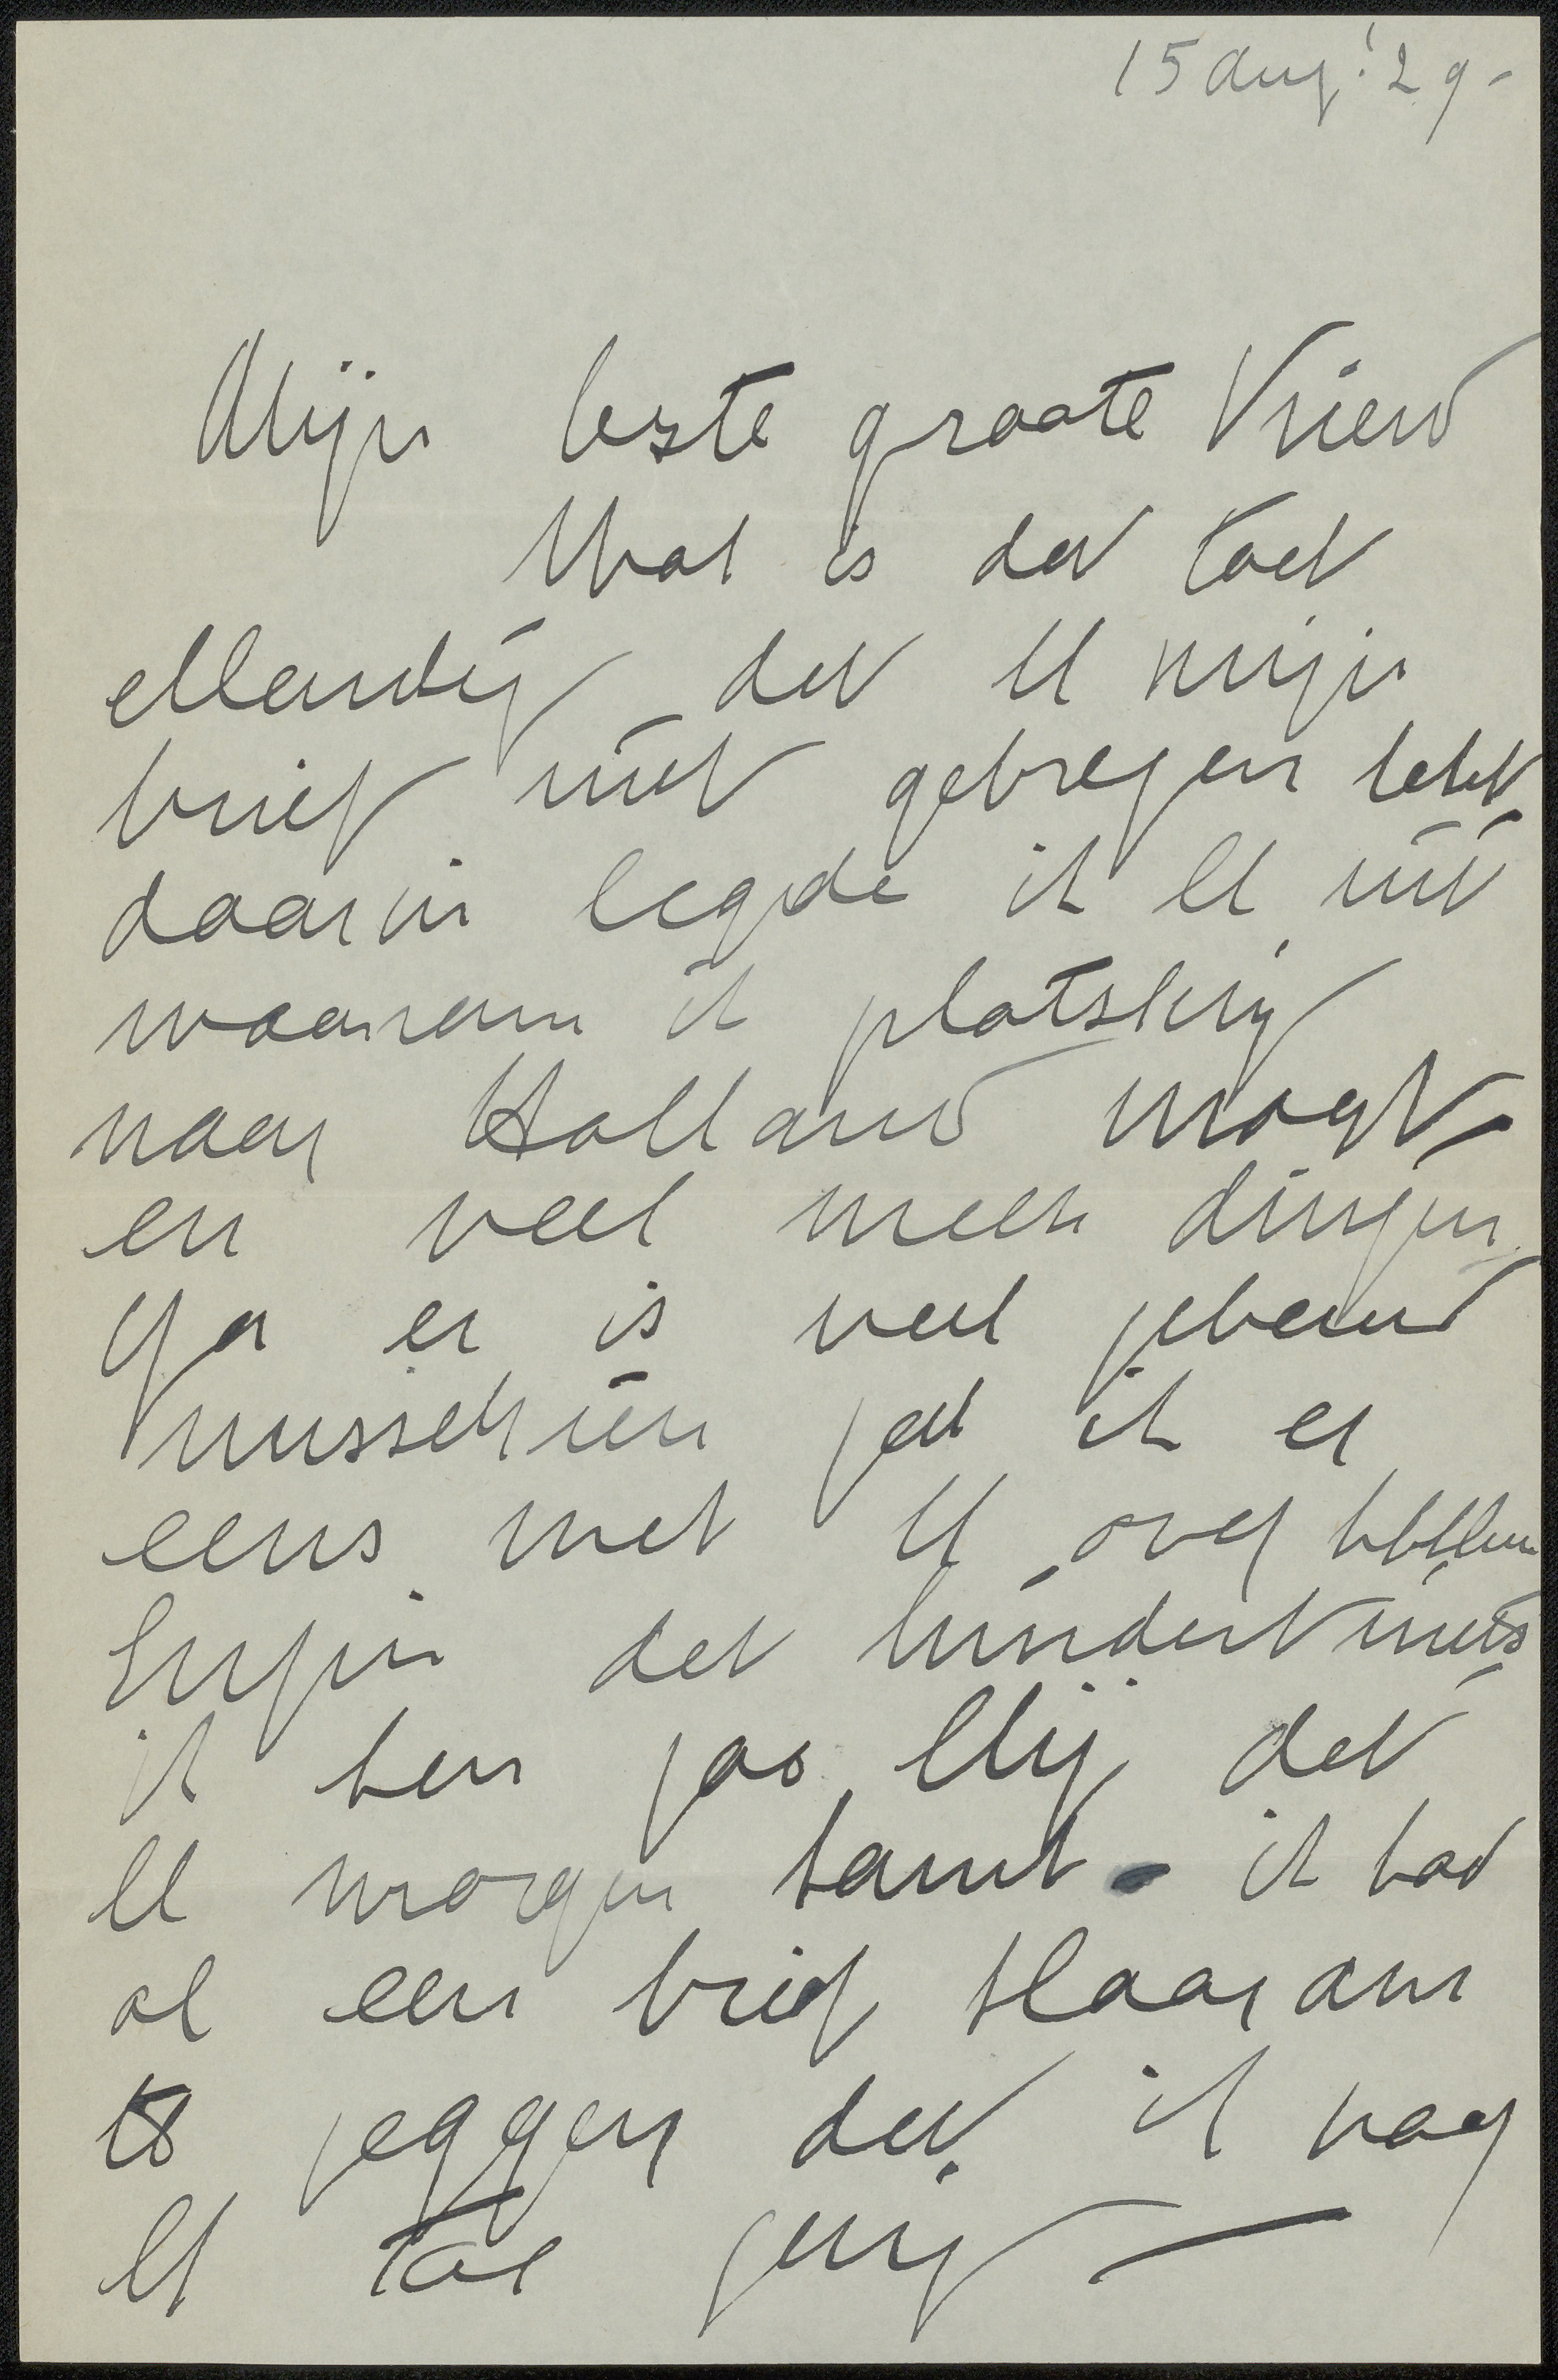 15 Aug: '29-
Mijn beste groote Vriend
Wat is dat toch
ellendig dat U mijn
brief niet gekregen hebt,
daarin legde ik U uit
waarom ik plotseling
naar Holland moest
en veel meer dingen
Ja er is veel gebeurd
misschien zal ik er
eens met U over
Enfin dat hindert niets
ik ben zoo blij dat
U morgen komt - ik had
al een brief klaar om
te zeggen dat ik naar
U toe ging -